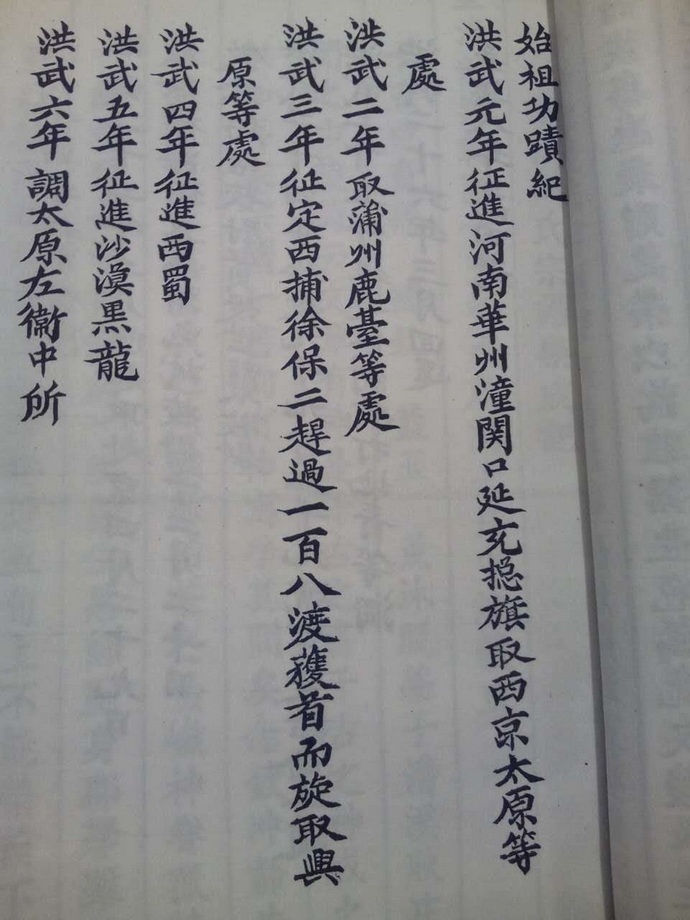 始祖功蹟紀
洪武元年征進河南華州潼関口延充摠旗取西京太原等
處
洪武二年取蒲州鹿臺等處
洪武三年征定西捕徐保二趕過一百八渡獲首而旋取興
原等處
洪武四年征進西蜀
洪武五年征進沙漠黒龍
洪武六年調太原左衛中所